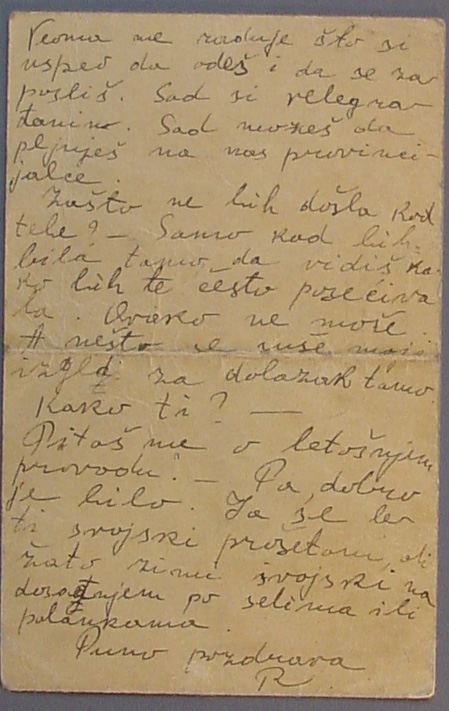 Veoma me raduje što si
uspeo da odeš i da se za-
posliš. Sad si velegra-
đanin. Sad možeš da
pljuješ na nas provinci-
jalce.
Zašto ne bih došla kod
tebe? — Samo kad bih
bila tamo da vidiš ka-
ko bih te često posećiva
la. Ovako ne može.
A nešto se ruše moji
izgledi za dolazak tamo.
Kako ti? —
Pitaš me o letošnjem
provodu. — Pa, dobro
je bilo. Ja se le
ti svojski prošetam, ali
zato zimi svojski na
po selima ili
palankama.
Puno pozdrava
R.